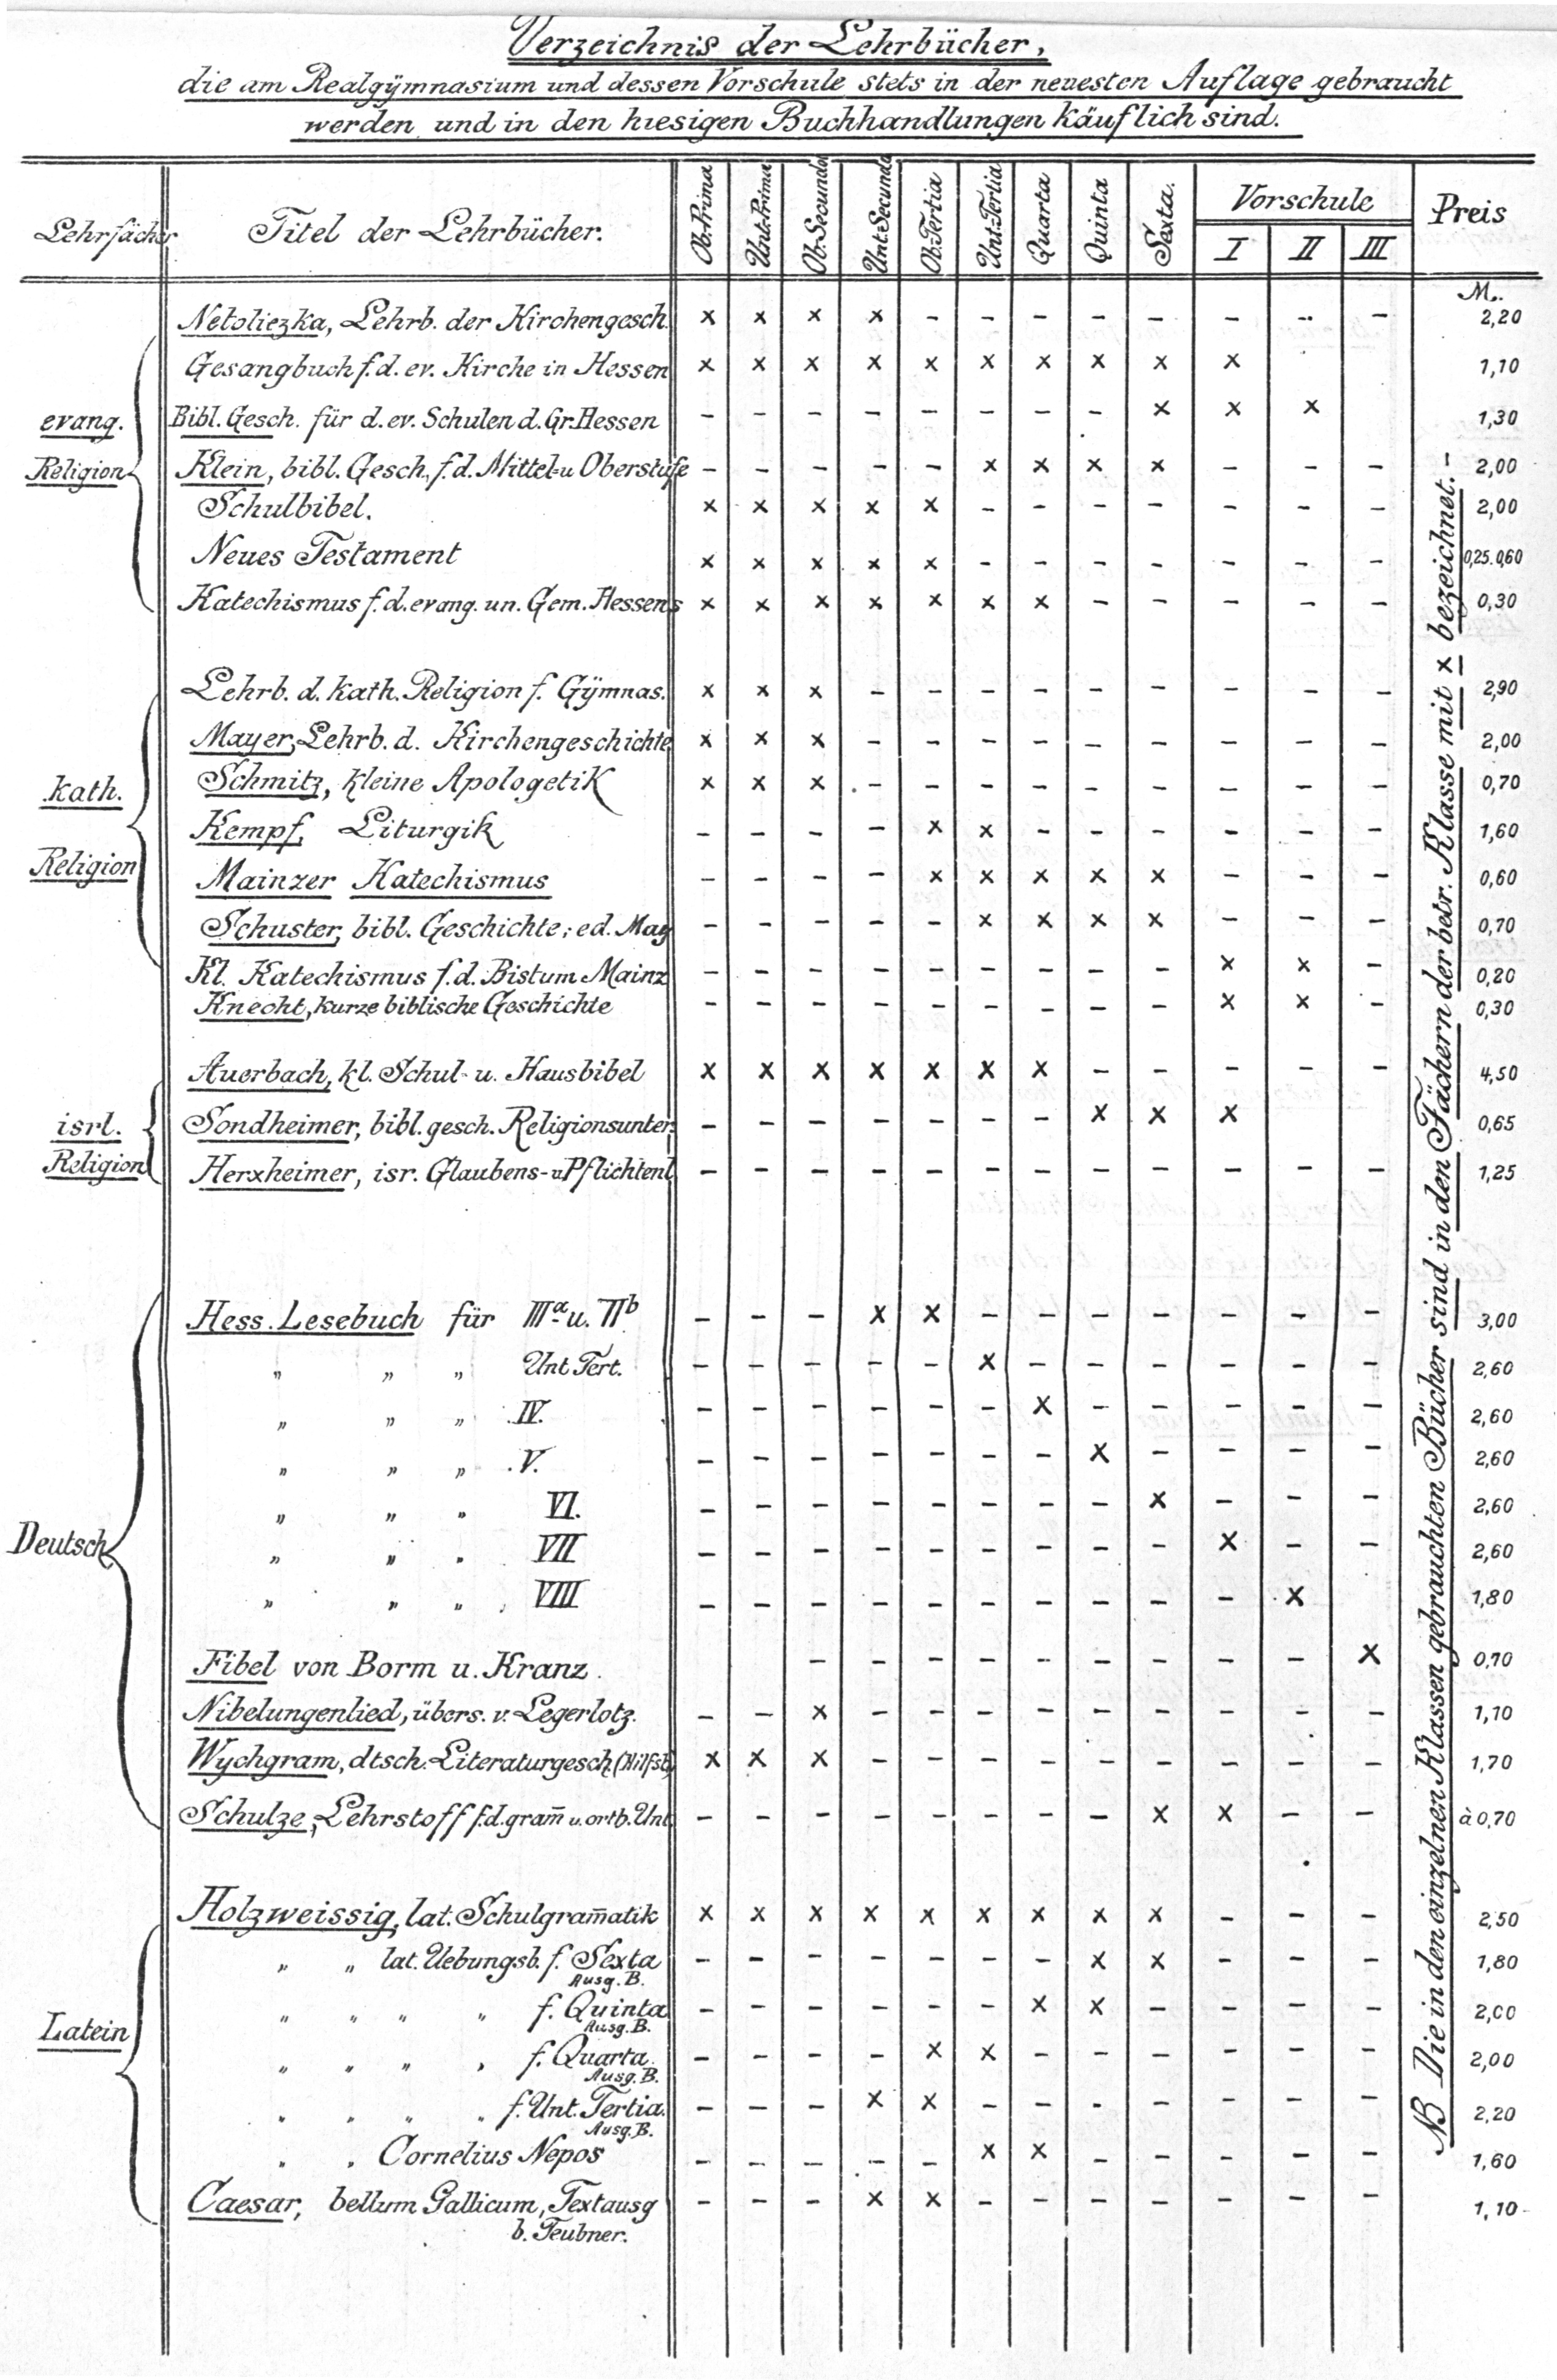 Verzeichnis der Lehrbücher,
die am Realgymnasium und dessen Vorschule stets in der neuesten Auflage gebraucht
werden und in den hiesigen Buchhandlungen käuflich sind.
Lehrfächer Titel der Lehrbücher. Ob.Prima Unt.Prima Ob.Secunda Unt.Secunda Ob.Tertia Unt.Tertia Quarta Quinta Sexta. Vorschule Preis
I II III
M.
Netoliczka, Lehrb. der Kirchengesch. x x x x – – – – – – – – 2,20
Gesangbuch f. d. ev. Kirche in Hessen x x x x x x x x x x 1,10
evang. Bibl. Gesch. für d. ev. Schulen d. Gr. Hessen – – – – – – – – x x x 1,30
Religion Klein, bibl. Gesch., f. d. Mittel- u Oberstufe – – – – – x x x x – – – 2,00
Schulbibel. x x x x x – – – – – – – 2,00
Neues Testament x x x x x – – – – – – – 0,25. 0,60
Katechismus f. d. evang. un. Gem. Hessens x x x x x x x – – – – – 0,30
Lehrb. d. kath. Religion f. Gymnas. x x x – – – – – – – – – 2,90
Mayer, Lehrb. d. Kirchengeschichte x x x – – – – – – – – – 2,00
kath. Schmitz, kleine Apologetik x x x – – – – – – – – – 0,70
Kempf, Liturgik – – – – x x – – – – – – 1,60
Religion Mainzer Katechismus – – – – x x x x x – – – 0,60
Schuster, bibl. Geschichte; ed. May – – – – – x x x x – – – 0,70
Kl. Katechismus f. d. Bistum Mainz – – – – – – – – – x x – 0,20
Knecht, kurze biblische Geschichte – – – – – – – – – x x – 0,30
Auerbach, kl. Schul- u. Hausbibel x x x x x x x – – – – – 4,50
isrl. Sondheimer, bibl. gesch. Religionsunter. – – – – – – – x x x 0,65
Religion Herxheimer, isr. Glaubens- u Pflichtenl – – – – – – – – – – – – 1,25
Hess. Lesebuch für IIIa u. IIb – – – x x – – – – – – – 3,00
„ „ „ Unt Tert. – – – – – x – – – – – – 2,60
„ „ „ IV. – – – – – – x – – – – – 2,60
„ „ „ V. – – – – – – – x – – – – 2,60
„ „ „ VI. – – – – – – – – x – – – 2,60
Deutsch „ „ „ VII – – – – – – – – – x – – 2,60
„ „ „ VIII – – – – – – – – – – x 1,80
Fibel von Borm u. Kranz. – – – – – – – – – x 0,70
Nibelungenlied, übers. v. Legerlotz. – – x – – – – – – – – – 1,10
Wychgram, dtsch. Literaturgesch. (Hilfsb) x x x – – – – – – – – – 1,70
Schulze, Lehrstoff f. d. gram̄ u. orth. Unt. – – – – – – – – x x – – à 0,70
Holzweissig, lat. Schulgram̄atik x x x x x x x x x – – – 2,50
„ „ lat. Uebungsb. f. Sexta – – – – – – – x x – – – 1,80
Ausg. B.
„ „ „ „ f. Quinta – – – – – – x x – – – – 2,00
Ausg. B.
Latein
„ „ „ „ f. Quarta. – – – – x x – – – – – – 2,00
Ausg. B.
„ „ „ „ f. Unt. Tertia. – – – x x – – – – – – – 2,20
Ausg. B.
„ „ Cornelius Nepos – – – – – x x – – – – – 1,60
Caesar, bellum Gallicum, Textausg – – – x x – – – – – – – 1,10
b. Teubner.
NB Die in den einzelnen Klassen gebrauchten Bücher sind in den Fächern der betr. Klasse mit x bezeichnet. –